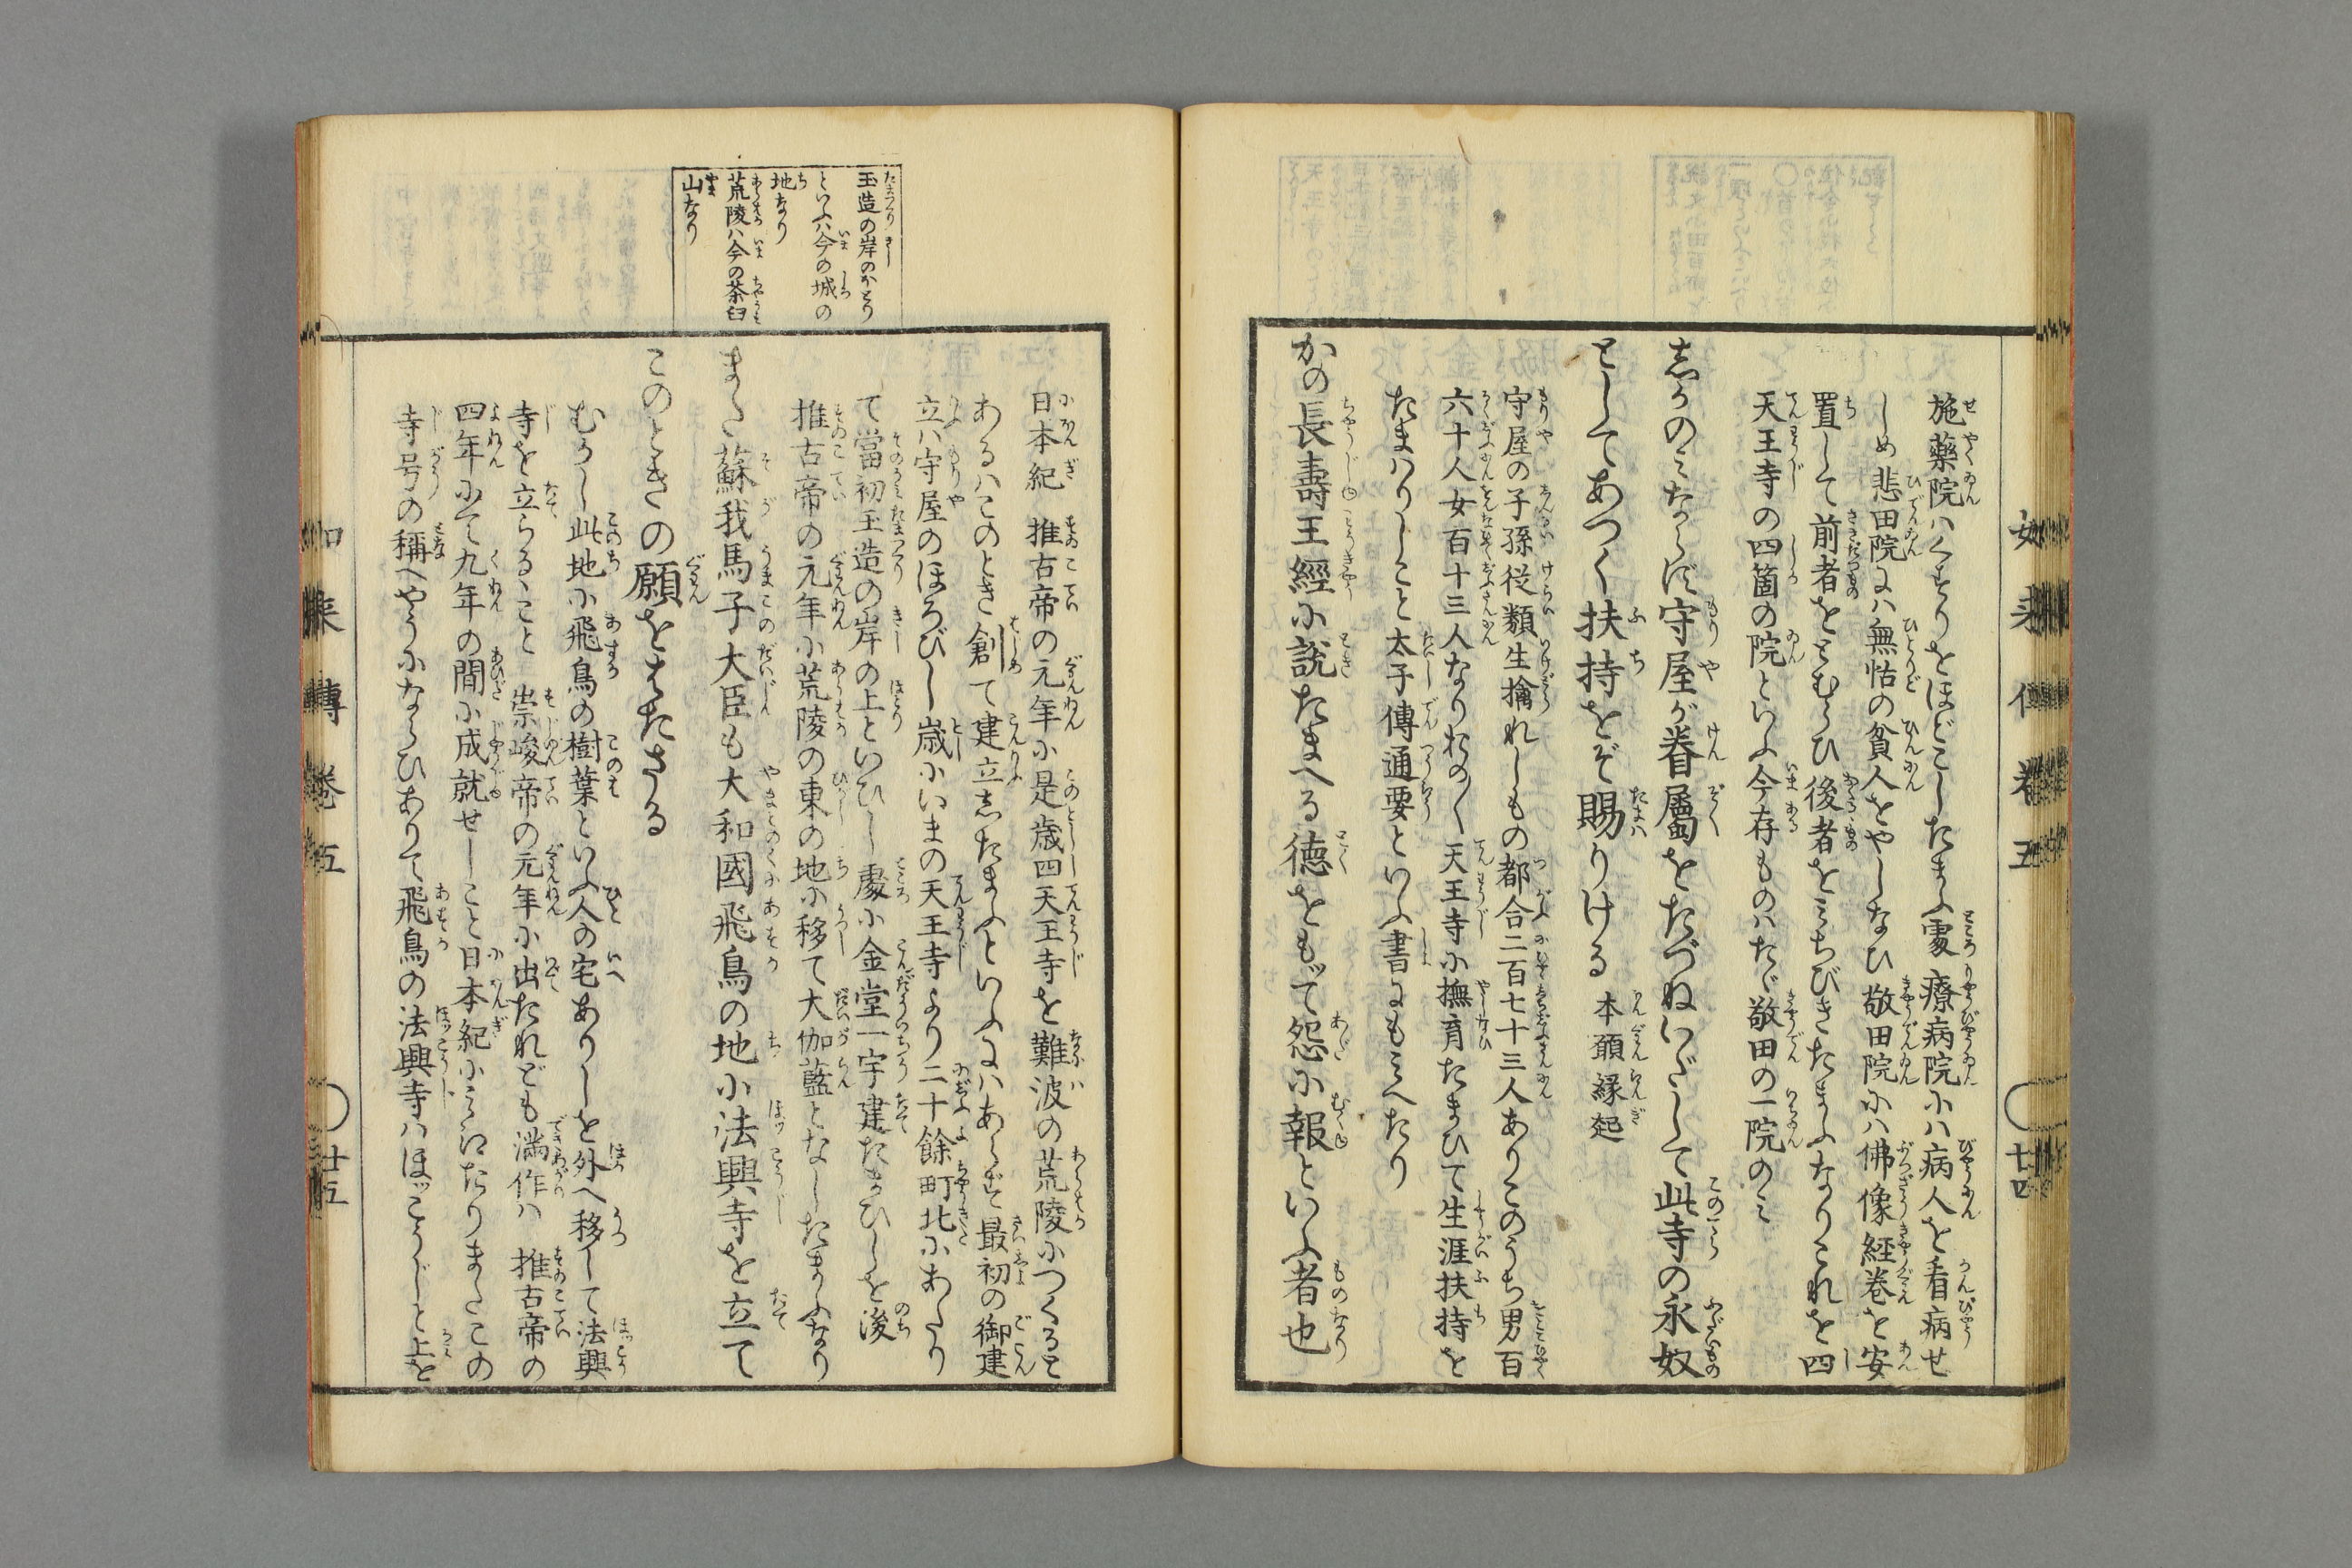 施藥院ハくすりをほどこしたまふ處療病院にハ病人を看病せ
しめ悲田院にハ無怙の貧人をやしなひ敬田院にハ佛像経巻を安
置して前者をとむらひ後者をみちびきたまふなりこれを四
天王寺の四箇の院といふ今存ものハたゞ敬田の一院のミ
志かのミならず守屋が眷属をたづねいだして此寺の永奴
としてあつく扶持をぞ賜りける 本願縁起
守屋の子孫従類生擒れしもの都合二百七十三人ありこのうち男百
六十人女百十三人なりおの〱天王寺に撫育たまひて生涯扶持を
たまハりしこと太子傳通要といふ書にもみへたり
かの長壽王經に説たまへる徳をもつて怨に報といふ者也
如来傳巻五
廿四
玉造の岸のほとり
といふハ今の城の
地なり
荒陵ハ今の茶臼
山なり
日本紀 推古帝の元年に是歳四天王寺を難波の荒陵につくると
あるハこのとき創て建立志たまふといふにハあらず最初の御建
立ハ守屋のほろびし歳にいまの天王寺より二十餘町北にあたり
て當初玉造の岸の上といひし處に金堂一宇建たまひしを後
推古帝の元年に荒陵の東の地に移て大伽藍となしたまふなり
また蘇我馬子大臣も大和國飛鳥の地に法興寺を立て
このときの願をはたさる
むかし此地に飛鳥の樹葉といふ人の宅ありしを外へ移して法興
寺を立らるゝこと 崇峻帝の元年に出たれども満作ハ 推古帝の
四年にて九年の間に成就せしこと日本紀に見へたりまたこの
寺号の稱へやうにならひありて飛鳥の法興寺ハほッこうじと上を
如来傳巻五
廿五